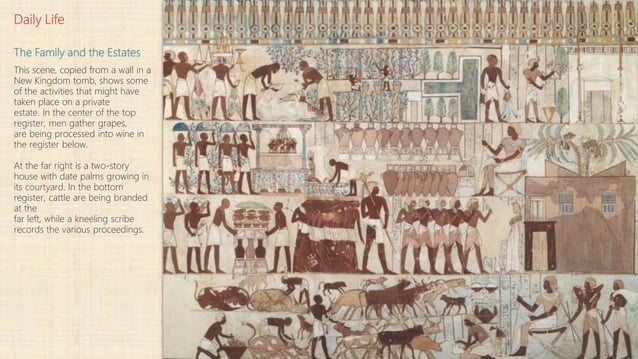 Daily Life
The Family and the Estates
This scene, copied from a wall in a
New Kingdom tomb, shows some
of the activities that might have
taken place on a private
estate. In the center of the top
register, men gather grapes,
are being processed into wine in
the register below.
At the far right is a two-story
house with date palms growing in
its courtyard. In the bottom
register, cattle are being branded
at the
far left, while a kneeling scribe
records the various proceedings.